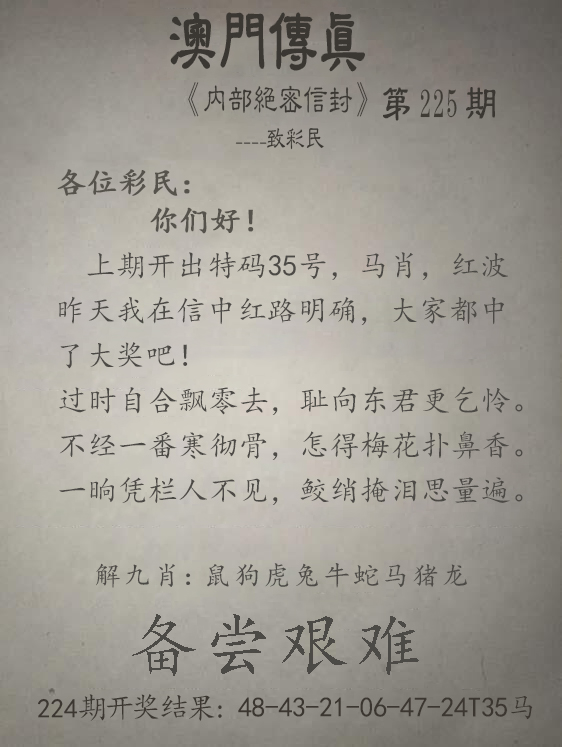 澳門傳眞
《内部絕密信封》第225期
----致彩民
各位彩民：
你们好！
上期开出特码35号，马肖，红波
昨天我在信中红路明确，大家都中
了大奖吧！
过时自合飘零去，耻向东君更乞怜。
不经一番寒彻骨，怎得梅花扑鼻香。
一晌凭栏人不见，鲛绡掩泪思量遍。
解九肖：鼠狗虎兔牛蛇马猪龙
备尝艰难
224期开奖结果：48-43-21-06-47-24T35马